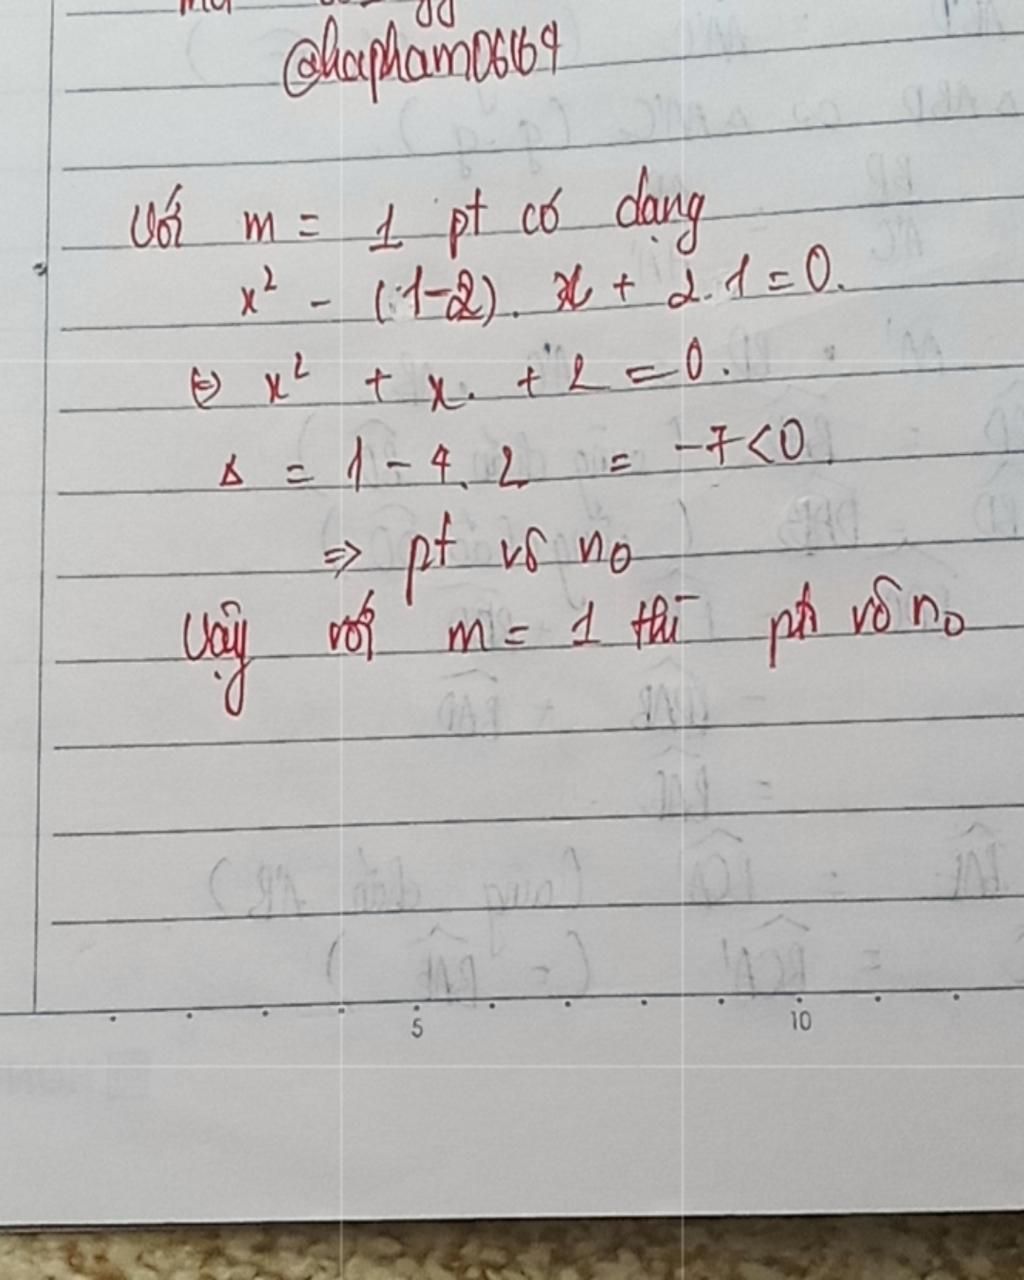 @hapham06169
Với m = 1 pt có dạng
x² - (1-2). x + 2.1 = 0.
⇔ x² + x. + 2 = 0.
Δ = 1 - 4. 2 = -7 < 0
⇒ pt vô n₀
Vậy với m = 1 thì pt vô n₀
5 10